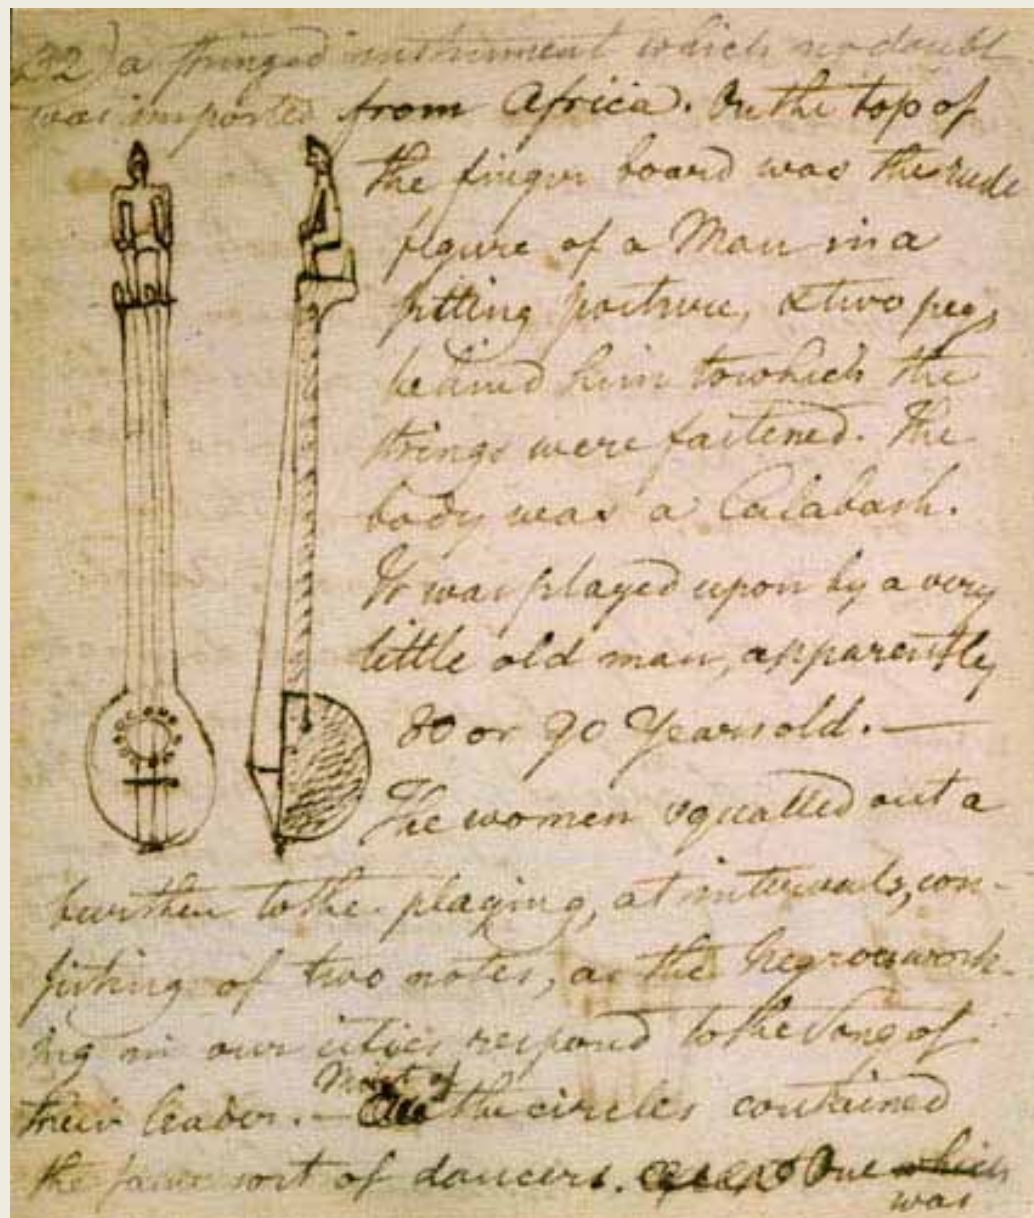 32) a stringed instrument which no doubt
was imported from Africa. On the top of
the finger board was the rude
figure of a Man in a
sitting posture, & two pegs
behind him to which the
strings were fastened. The
body was a Calabash.
It was played upon by a very
little old man, apparently
80 or 90 Years old. —
The women squalled out a
burthen to the playing, at intervals, con-
sisting of two notes, as the Negroes work-
ing in our cities respond to the Song of
their leader. — Most of
All the circles contained
the same sort of dancers. One which
was